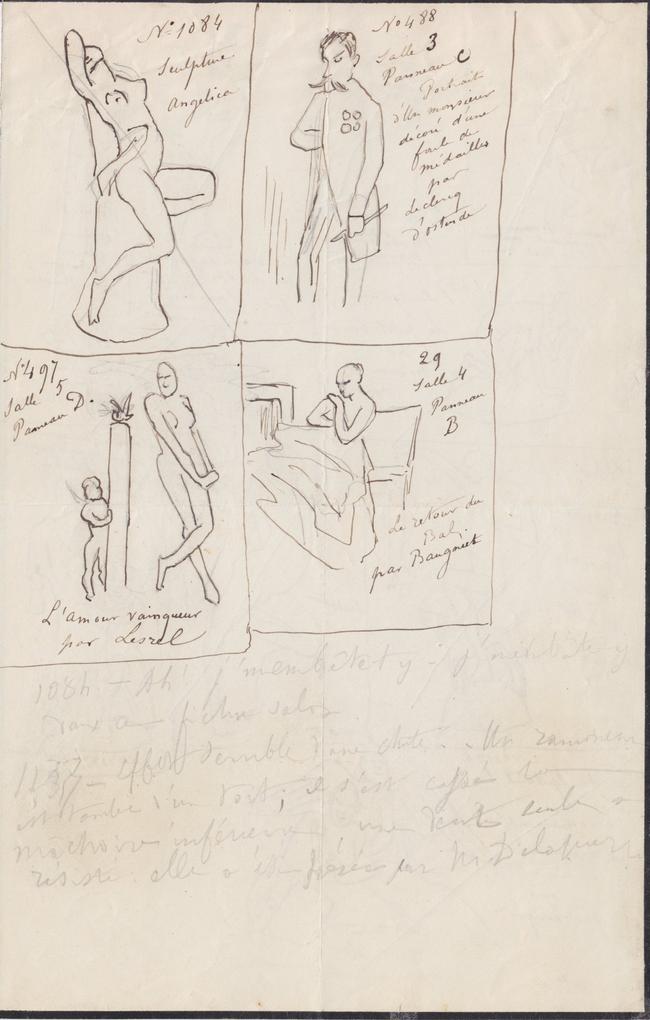 No 1084
Sculpture
Angelica
No 488
Salle 3
Panneau C
Portrait
d'un monsieur
décoré d'une
foule de
médailles
par
Leclercq
d'ostende
No 497
Salle 5
Panneau D.
L'amour vainqueur
par Lesrel
29
Salle 4
Panneau
B
Le retour du
Bal,
par Baugniet
1084 — Ah! j'membétety; j'membétety
dans ce fichu salon
Effet terrible d'une chute. Un ramoneur
est tombé d'un toit; il s'est cassé la
machoire inférieure une dent seule a
résisté: elle a été par M.